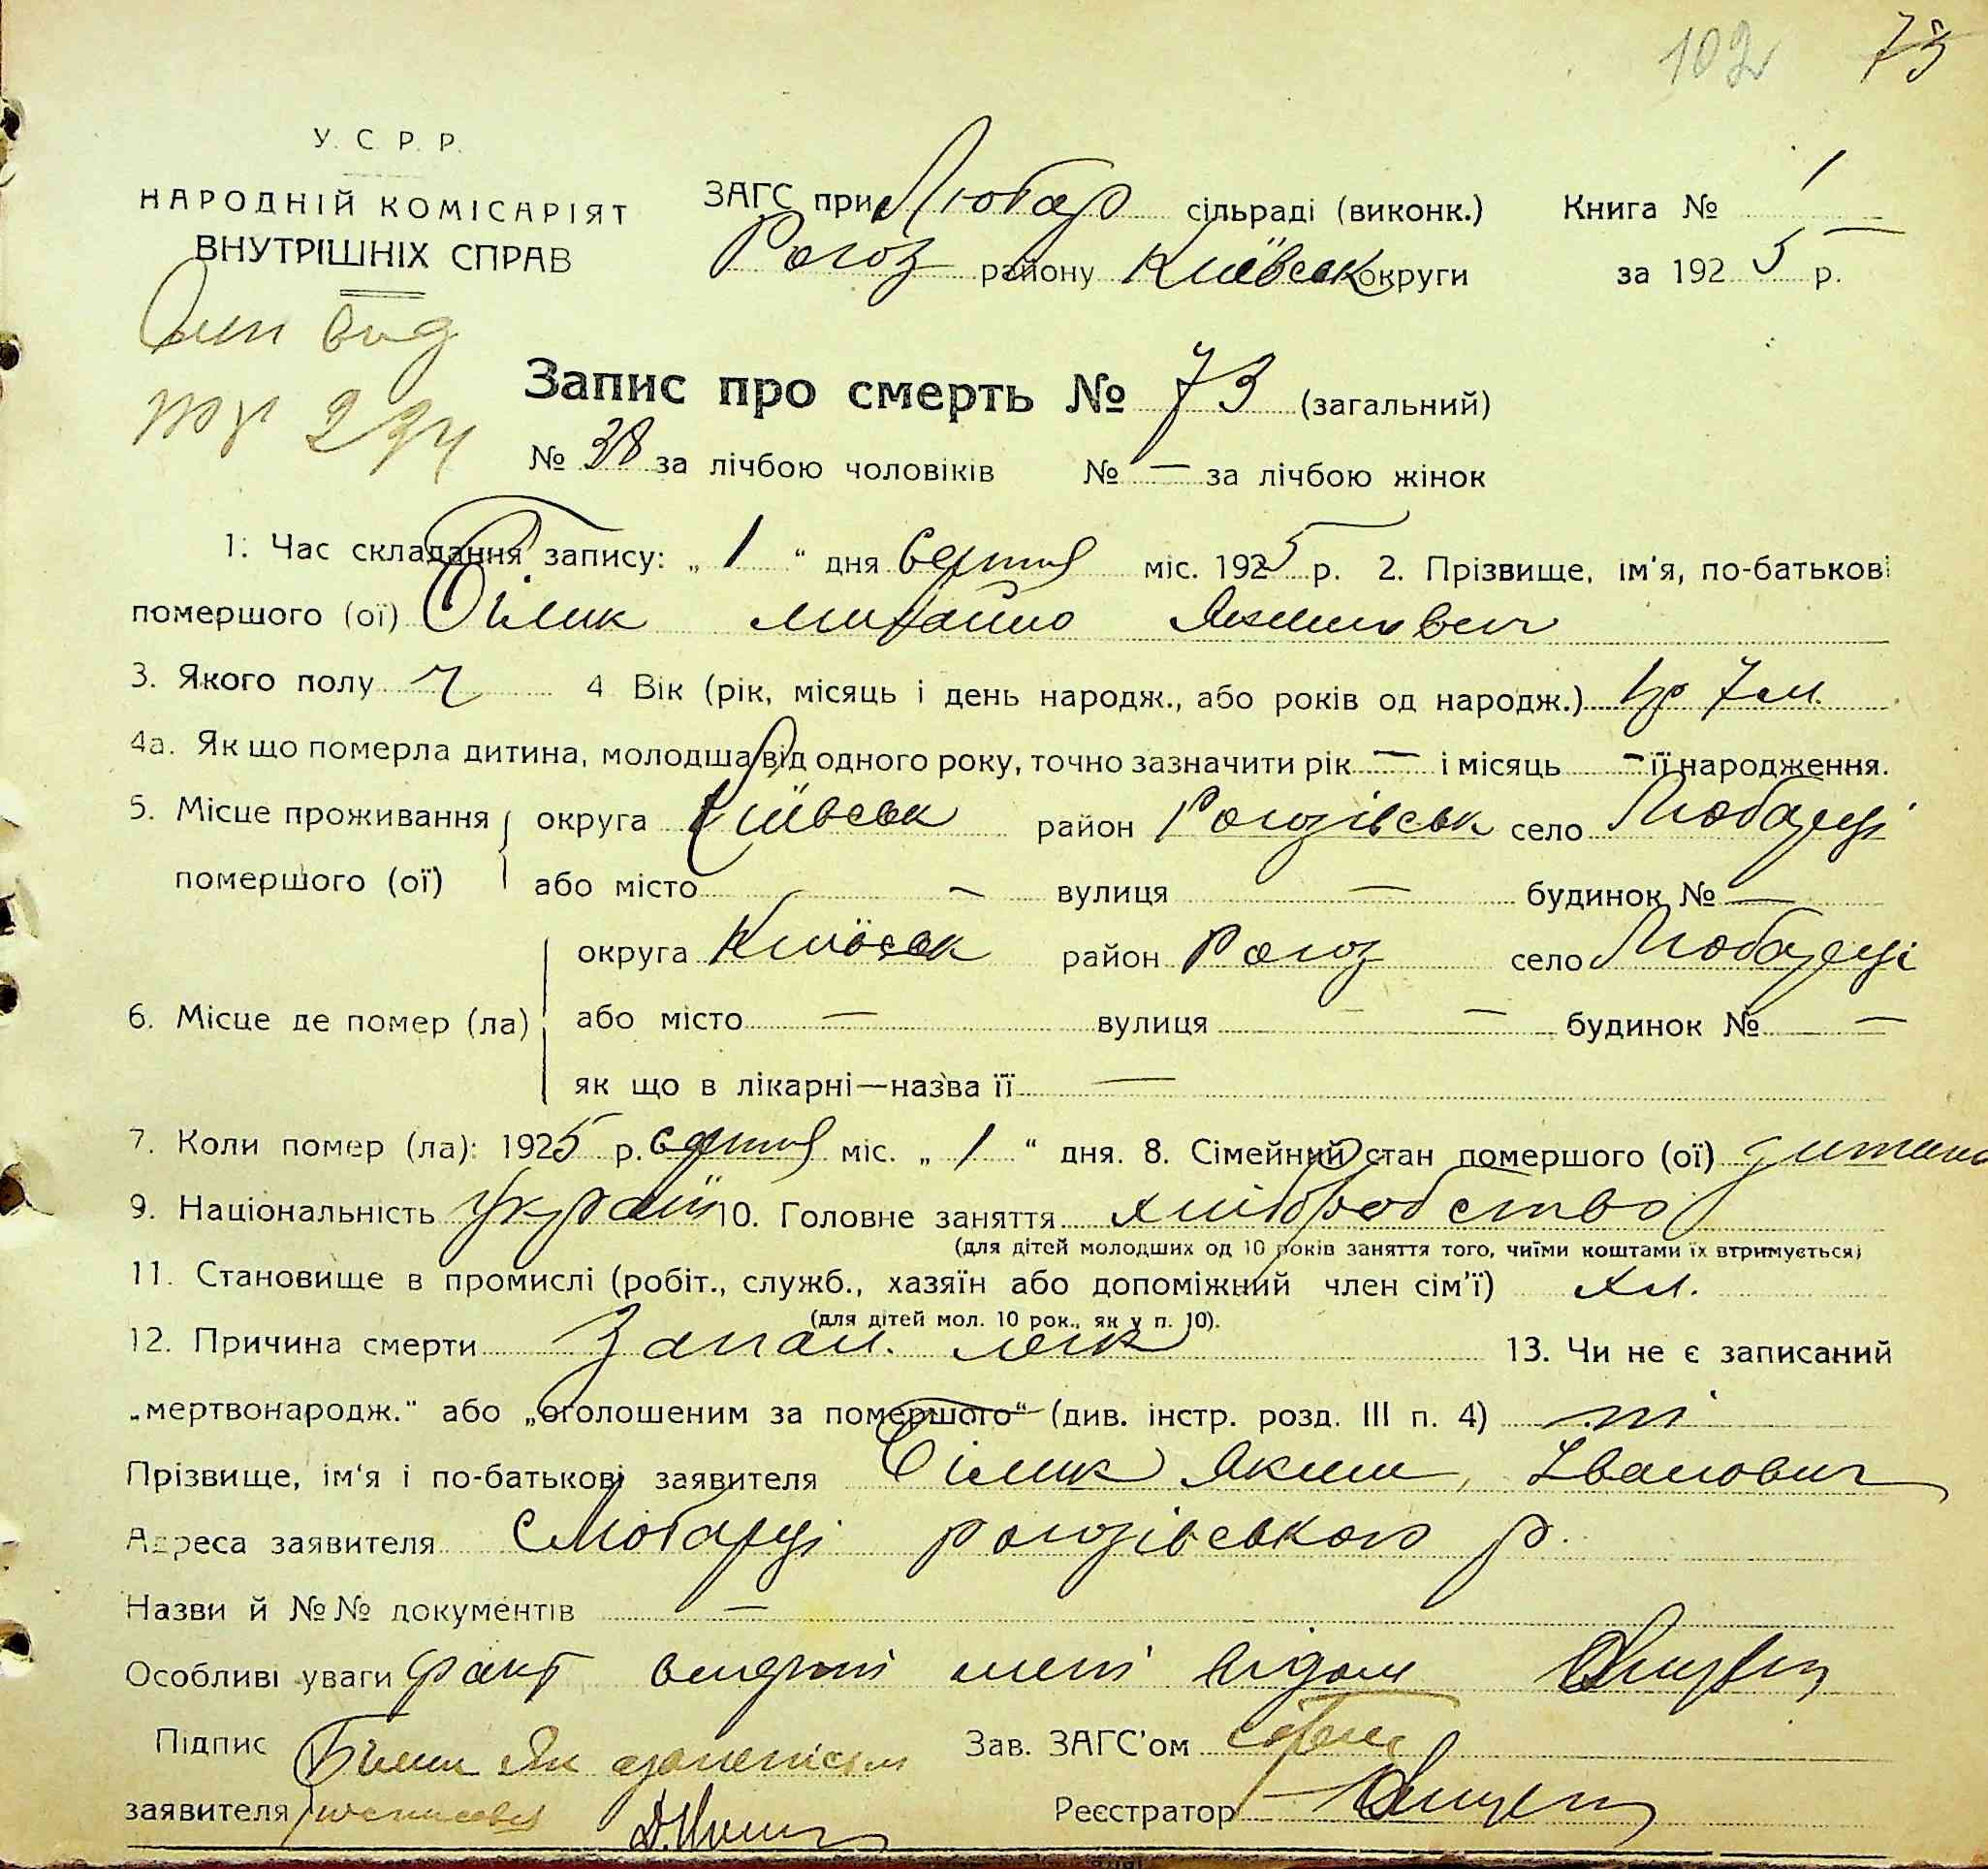 102 73
У. С. Р. Р.
НАРОДНІЙ КОМІСАРІЯТ
ВНУТРІШНІХ СПРАВ
ЗАГС при Любар сільраді (виконк.) Книга № 1
Рогоз району Київськ округи за 1925 р.
Запис про смерть № 73 (загальний)
№ 38 за лічбою чоловіків № — за лічбою жінок
1. Час складання запису: „ 1 “ дня Серпня міс. 1925 р. 2. Прізвище, ім'я, по-батькові
помершого (ої) Білик Михайло Якимович
3. Якого полу ч 4 Вік (рік, місяць і день народж., або років од народж.) 1р 7 м.
4а. Як що померла дитина, молодша від одного року, точно зазначити рік — і місяць — її народження.
5. Місце проживання округа Київськ район Рогозівськ село Любарці
помершого (ої) або місто — вулиця — будинок № —
округа Київськ район Рогоз село Любарці
6. Місце де помер (ла) або місто — вулиця — будинок № —
як що в лікарні—назва її —
7. Коли помер (ла): 1925 р. Серпня міс. „ 1 “ дня. 8. Сімейний стан помершого (ої) дитина
9. Національність Україн 10. Головне заняття хліборобство
(для дітей молодших од 10 років заняття того, чиїми коштами їх втримується)
11. Становище в промислі (робіт., служб., хазяїн або допоміжний член сім'ї) хл.
(для дітей мол. 10 рок., як у п. 10).
12. Причина смерти Запал. лек 13. Чи не є записаний
„мертвонародж.“ або „оголошеним за помершого“ (див. інстр. розд. III п. 4) ні
Прізвище, ім'я і по-батькові заявителя Білик Яким Іванович
Адреса заявителя с Любарці рогозівського р.
Назви й №№ документів —
Особливі уваги факт смерти мені відом
Підпис Зав. ЗАГС'ом
заявителя Реєстратор